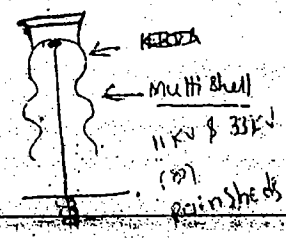 Multi Shell
11 KV & 33 KV
(or)
Rainsheds